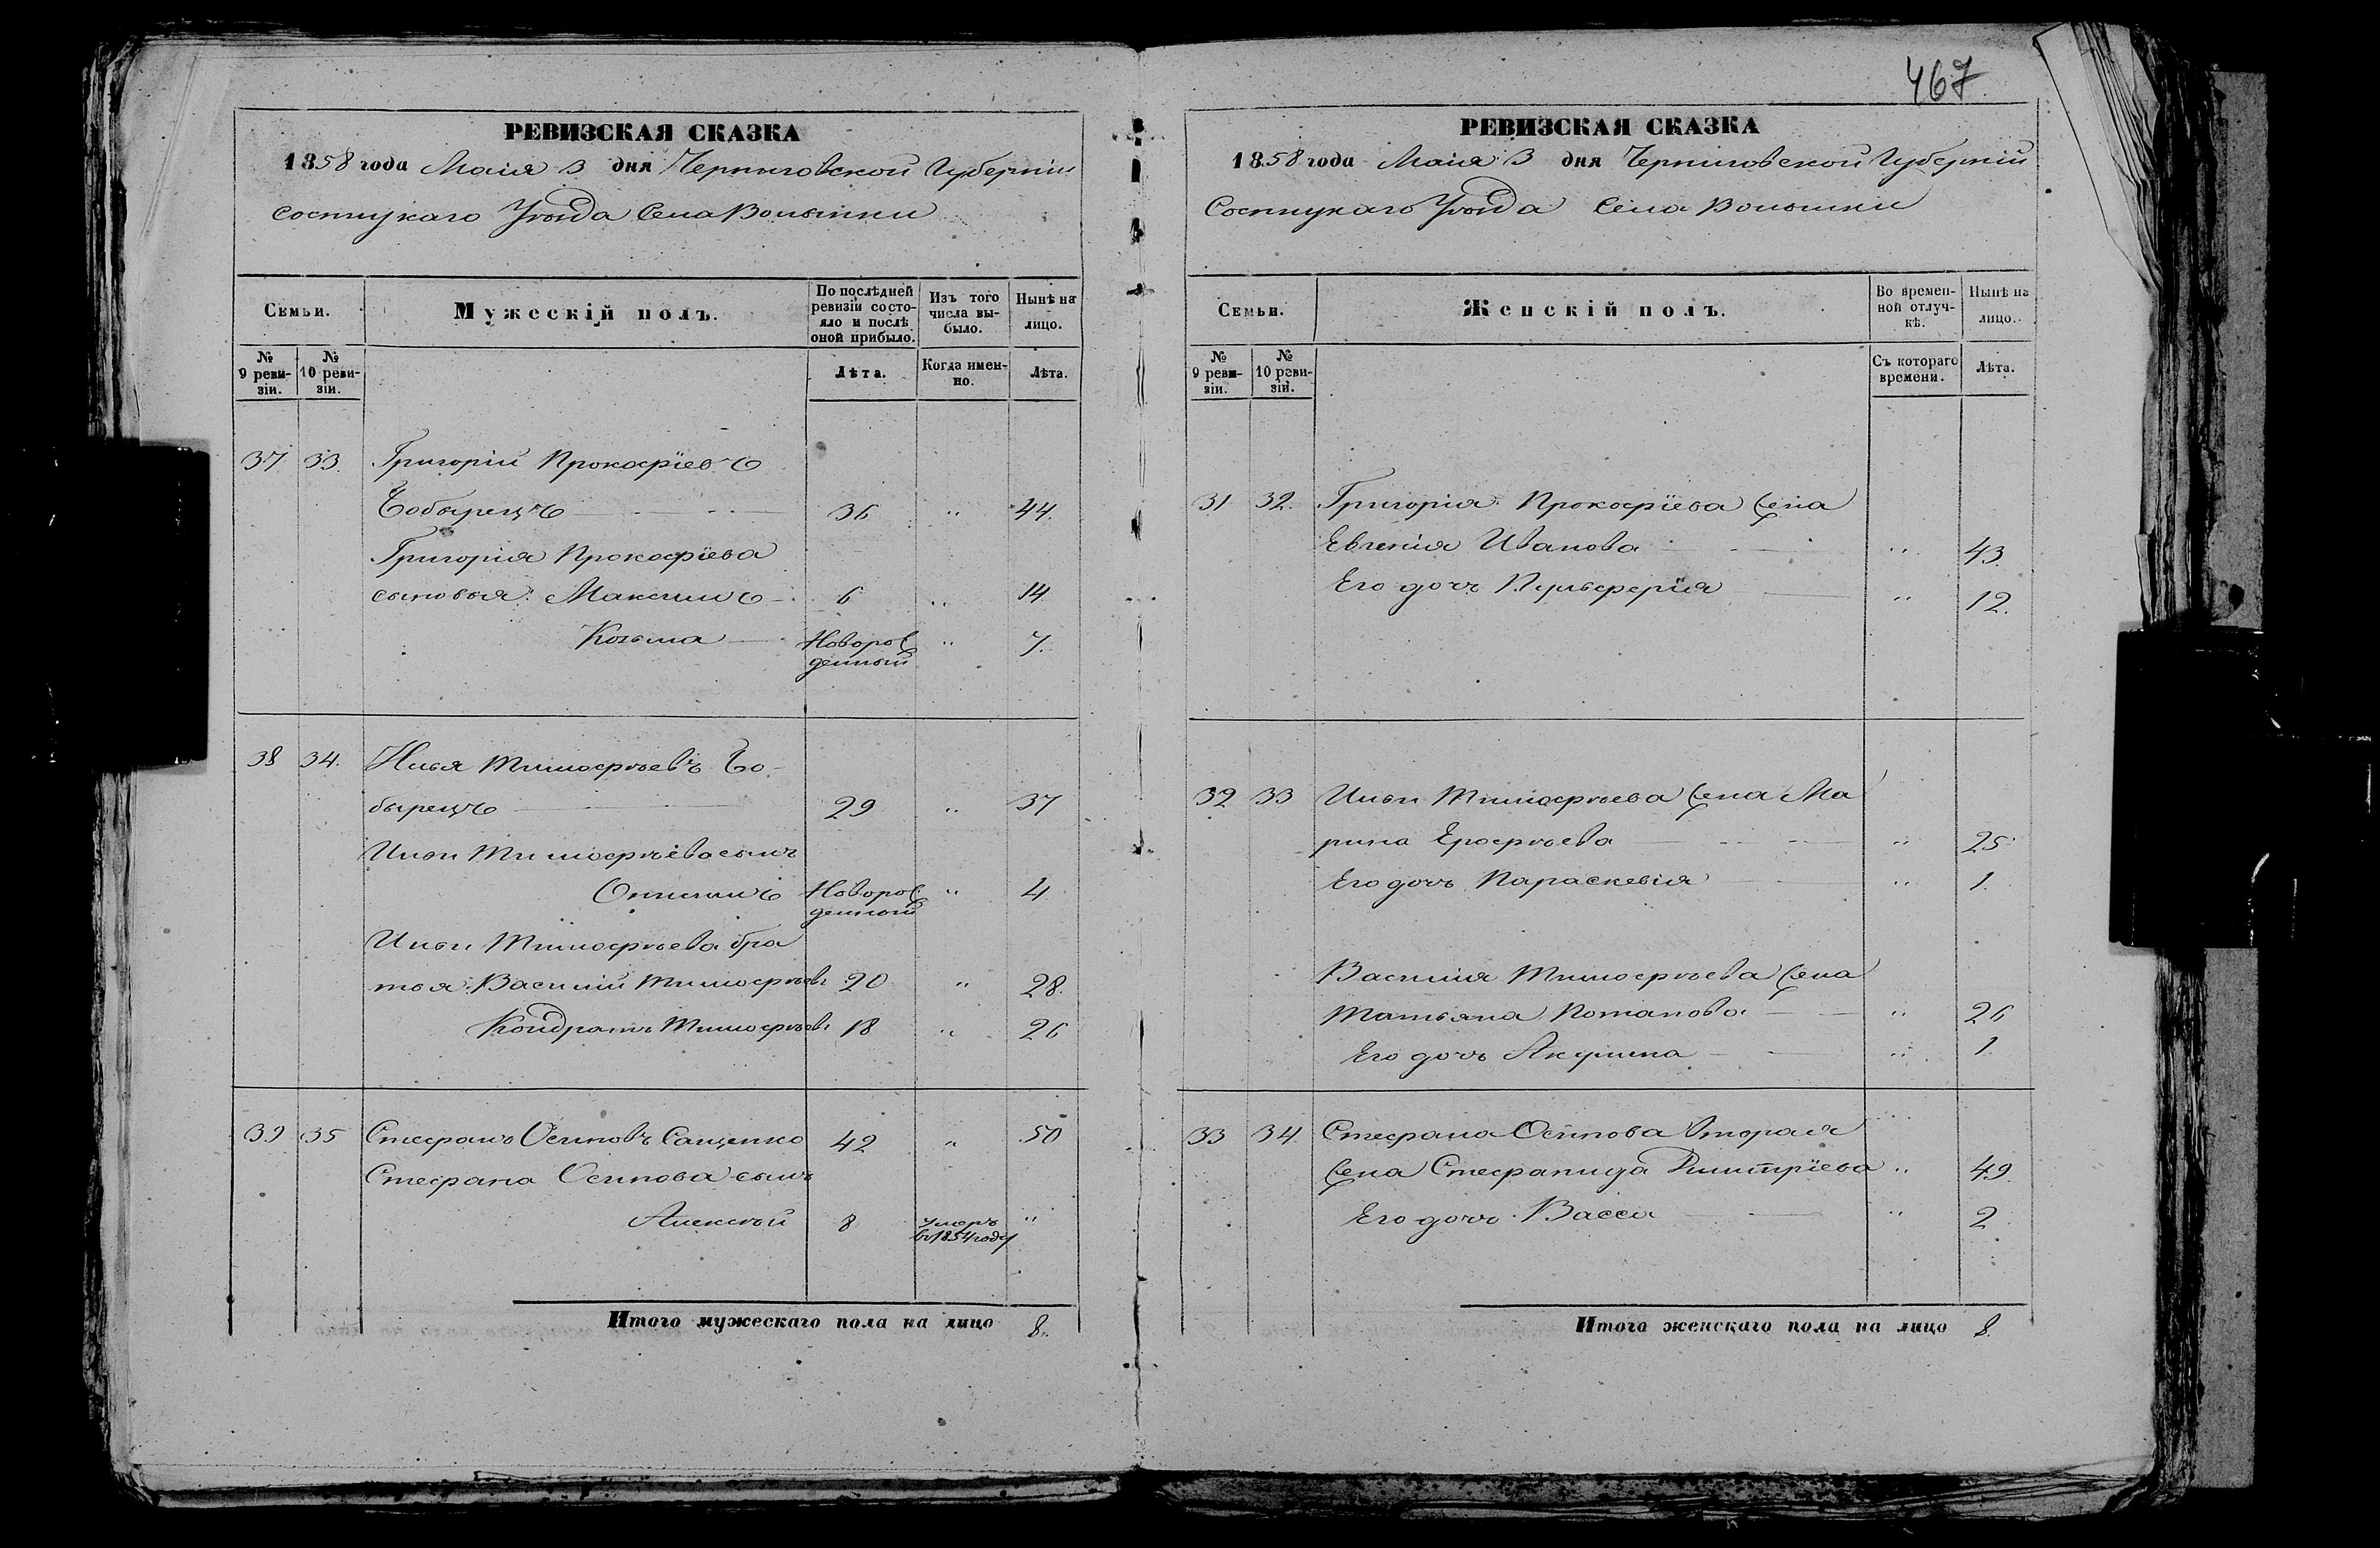 467
РЕВИЗСКАЯ СКАЗКА
1858 года Маія 3 дня Черниговской Губерніи
Сосницкаго Уѣзда Села Волынки
Семьи.
Мужескій полъ.
По послѣдней ревизіи состояло и послѣ оной прибыло.
Изъ того числа выбыло.
Нынѣ на лицо.
№ 9 ревизіи.
№ 10 ревизіи.
Лѣта.
Когда именно.
Лѣта.
37 33. Григорій Прокофіевъ
Бобырецъ 36 " 44.
Григорія Прокофіева
сыновья: Максимъ 6 " 14
Козьма Новорожденный " 7.
38 34. Илья Тимофѣевъ Бо-
бырецъ 29 " 37
Ильи Тимофѣева сынъ
Онисимъ Новорожденный " 4
Ильи Тимофѣева бра
тья: Василій Тимофѣевъ 20 " 28.
Кондратъ Тимофѣевъ 18 " 26
39 35 Стефанъ Осиповъ Сащенко 42 " 50
Стефана Осипова сынъ
Алексѣй 8 умеръ въ 1854 году "
Итого мужескаго пола на лицо 8.
РЕВИЗСКАЯ СКАЗКА
1858 года Маія 3 дня Черниговской Губерніи
Сосницкаго Уѣзда Села Волынки
Семьи.
Женскій полъ.
Во временной отлучкѣ.
Нынѣ на лицо.
№ 9 ревизіи.
№ 10 ревизіи.
Съ котораго времени.
Лѣта.
31 32. Григорія Прокофіева жена
Евгенія Иванова " 43.
Его дочь Пульферія " 12.
32 33 Ильи Тимофѣева жена Ма
рина Ерофѣева " 25
Его дочь Параскевія " 1.
Василія Тимофѣева жена
Татьяна Потапова " 26
Его дочь Акулина " 1.
33 34. Стефана Осипова вторая
жена Стефанида Дмитріева " 49.
Его дочь Васса " 2.
Итого женскаго пола на лицо 8.